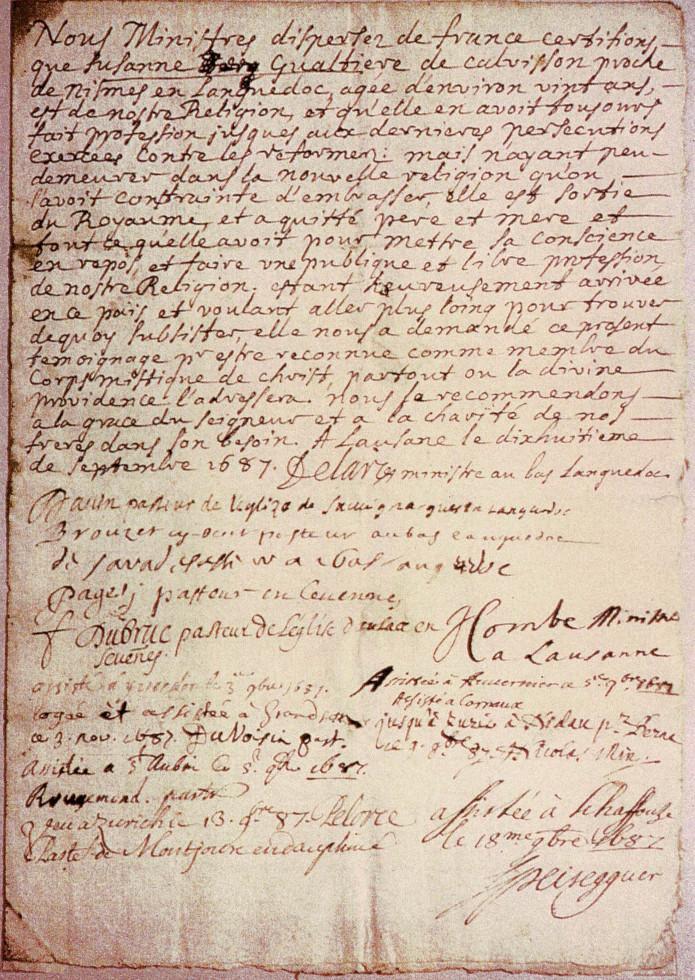 Nous Ministres dispersez de france certifions
que Susanne Gualtiere de calvisson proche
de Nismes en Languedoc, agée d'environ vint ans,
est de nostre Religion, et qu'elle en avoit tousjours
fait profession jusques aux dernieres persecutions
exercées contre les reformez: mais n'ayant peu
demeurer dans la nouvelle religion qu'on
l'avoit contrainte d'embrasser, elle est sortie
du Royaume, et a quitté pere et mere et
tout ce qu'elle avoit pour mettre sa conscience
en repos, et faire une publique et libre profession
de nostre Religion. estant heureusement arrivée
en ce païs et voulant aller plus loing pour trouver
dequoy subsister, elle nous a demandé ce present
temoignage pr estre reconnue comme membre du
Corps mistique de christ, partout ou la divine
providence l'adressera. nous la recommendons
a la grace du seigneur et a la charité de nos
freres dans son besoin. A Lausane le dixhuitieme
de septembre 1687. ministre au bas Languedoc
pasteur de l'eglize de Languedoc
Brouzet pasteur au bas Languedoc
Pagezy pasteur en Cevennes,
Dubruc pasteur de L'église en
Sevenes.
Combe Ministre
a Lausanne
logée et assistée à
ce 3. nov. 1687. DuVoisin past.
Assistée a St Aubin 1687.
Rougemond. pastr
Assistée à
Assistée a Cornaux
jusqu'a
Nicolas Min.
a Zurich le 13. 9bre 87. Pelorce
Paste de Montjoux en dauphiné
assistée à Schaffouse
le 18me 9bre 1687
Speisegguer